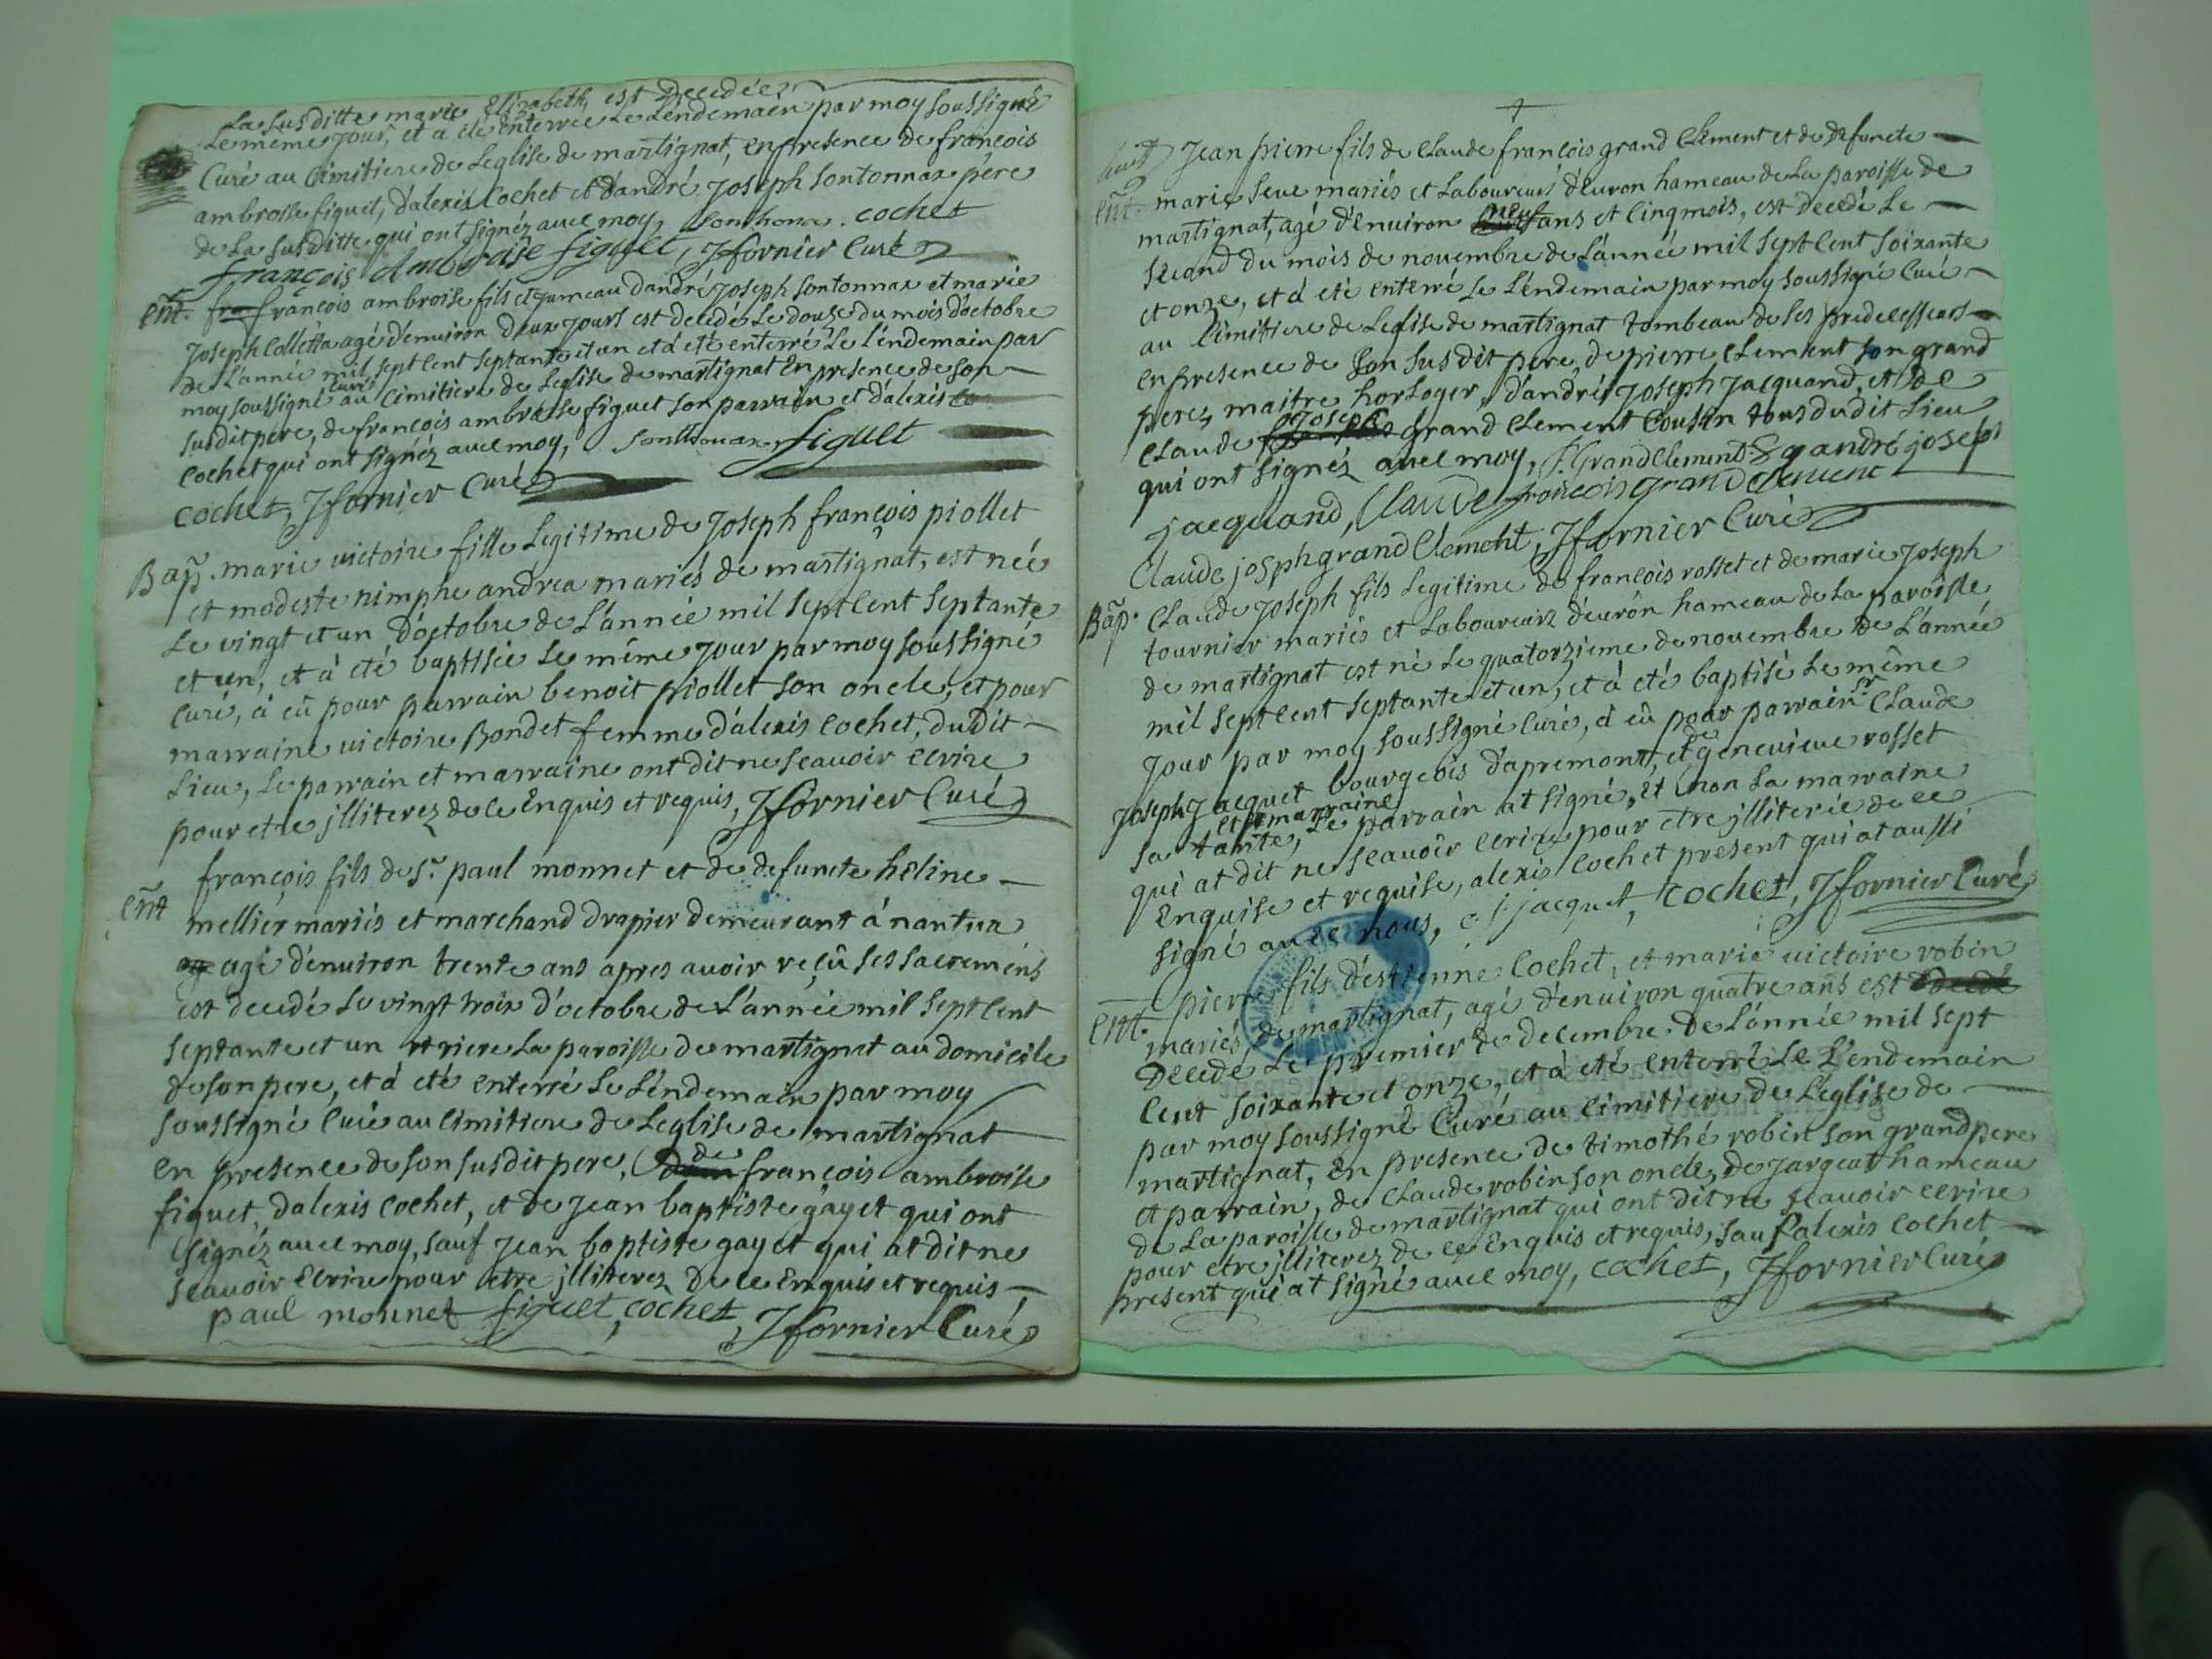 La susditte marie Elizabeth est Decedée
Le même jour, et a eté enterrée Le Lendemain par moy soussigné
Curé au Cimitiere de Leglise de martignat, en presence de françois
ambroise figuet, d'alexis Cochet et d'andré Joseph sontonnax pére
de La susditte qui ont signéz avec moy, sonthonax. cochet
françois Ambroise figuet, Jfornier Curé
ent. françois ambroise fils et jumeau dandré Joseph sontonnax et marie
Joseph Collétta agé d'environ deux jours est decedé Le douse du mois d'octobre
de L'année mil sept cent septante et un et a été enterré Le Léndemain par
moy soussigné curé au Cimitiere de Leglise de martignat En presence de son
susdit pere, de françois ambroise figuet son parrain et d'alexis
cochet qui ont signéz avec moy, sonthonax figuet
cochet, Jfornier Curé
Bap. marie victoire fille Legitime de Joseph françois piollet
et modeste nimphe andrea mariés de martignat, est née
Le vingt et un d'octobre de L'année mil sept cent septante
et un, et à eté baptisée Le même jour par moy soussigné
Curé, à eû pour parrain benoit piollet son oncle, et pour
marraine victoire Bondet femme d'alexis cochet, dudit
Lieu, Le parrain et marraine ont dit ne scavoir ecrire
pour etre jlliterez de ce Enquis et requis, Jfornier Curé
françois fils de Sr. paul monnet et de defuncte heline
ent mellier mariés et marchand drapier demeurant á nantua
agé d'environ trente ans apres avoir reçû ses sacremens
est decedé Le vingt trois d'octobre de L'année mil sept cent
septante et un riere La paroisse de martignat au domicile
de son pere, et à eté enterré Le Léndemain par moy
soussigné Curé au Cimitiere de Leglise de martignat
en presence de son susdit pere, de françois ambroise
figuet, dalexis cochet, et de Jean baptiste gayet qui ont
signéz avec moy, sauf Jean baptiste gayet qui at dit ne
scavoir Ecrire pour etre jlliterez de ce Enquis et requis
paul monnet figuet, cochet, Jfornier Curé
Jean pierre fils de Claude françois grand Clement et de defuncte
ent. marie seve mariés et Laboureurs d'evron hameau de La paroisse de
martignat, agé d'environ neuf ans et cinq mois, est decedé Le
second du mois de novembre de L'année mil sept cent soixante
et onze, et à eté enterré Le Léndemain par moy soussigné Curé
au Cimitiere de Leglise de martignat tombeau de ses predecesseurs
en presence de son susdit pere, de pierre Clement son grand
pere, maitre horloger, d'andré Joseph Jacquand, et de
Claude Joseph grand Clement Cousin tous dudit Lieu
qui ont signéz avec moy, P. Grand Clement andré joseph
jacquand, Claude françois grand Clement
Claude josph grand Clement, Jfornier Curé
Bap. Claude Joseph fils Legitime de françois rosset et de marie Joseph
tournier mariés et Laboureurs d'evron hameau de La paroisse
de martignat est né Le quatorzieme de novembre de L'année
mil sept cent septante et un, et à eté baptisé Le même
Jour par moy soussigné Curé, à eû pour parrain Sr. Claude
Joseph Jacquet bourgeois d'apremont, et de genevieve rosset
sa tante, et marraine Le parrain at signé, et non La marraine
qui at dit ne scavoir ecrire pour etre jlliterée de ce
Enquise et requise, alexis Cochet present qui at aussi
signé avec nous, c j. jacquet, cochet, Jfornier Curé
pierre fils d'estienne Cochet, et marie victoire robin
ent. mariés de martignat, agé d'environ quatre ans est
decedé Le premier de decembre de L'année mil sept
cent soixante et onze, et à eté enterré Le L'endemain
par moy soussigné Curé au cimitiere de L'eglise de
martignat, en presence de timothé robin son grand pere
et parrain, de Claude robin son oncle, de Jargeat hameau
de La paroisse de martignat qui ont dit ne scavoir ecrire
pour etre jlliterez de ce Enquis et requis, sauf alexis cochet
present qui at signé avec moy, cochet, Jfornier Curé